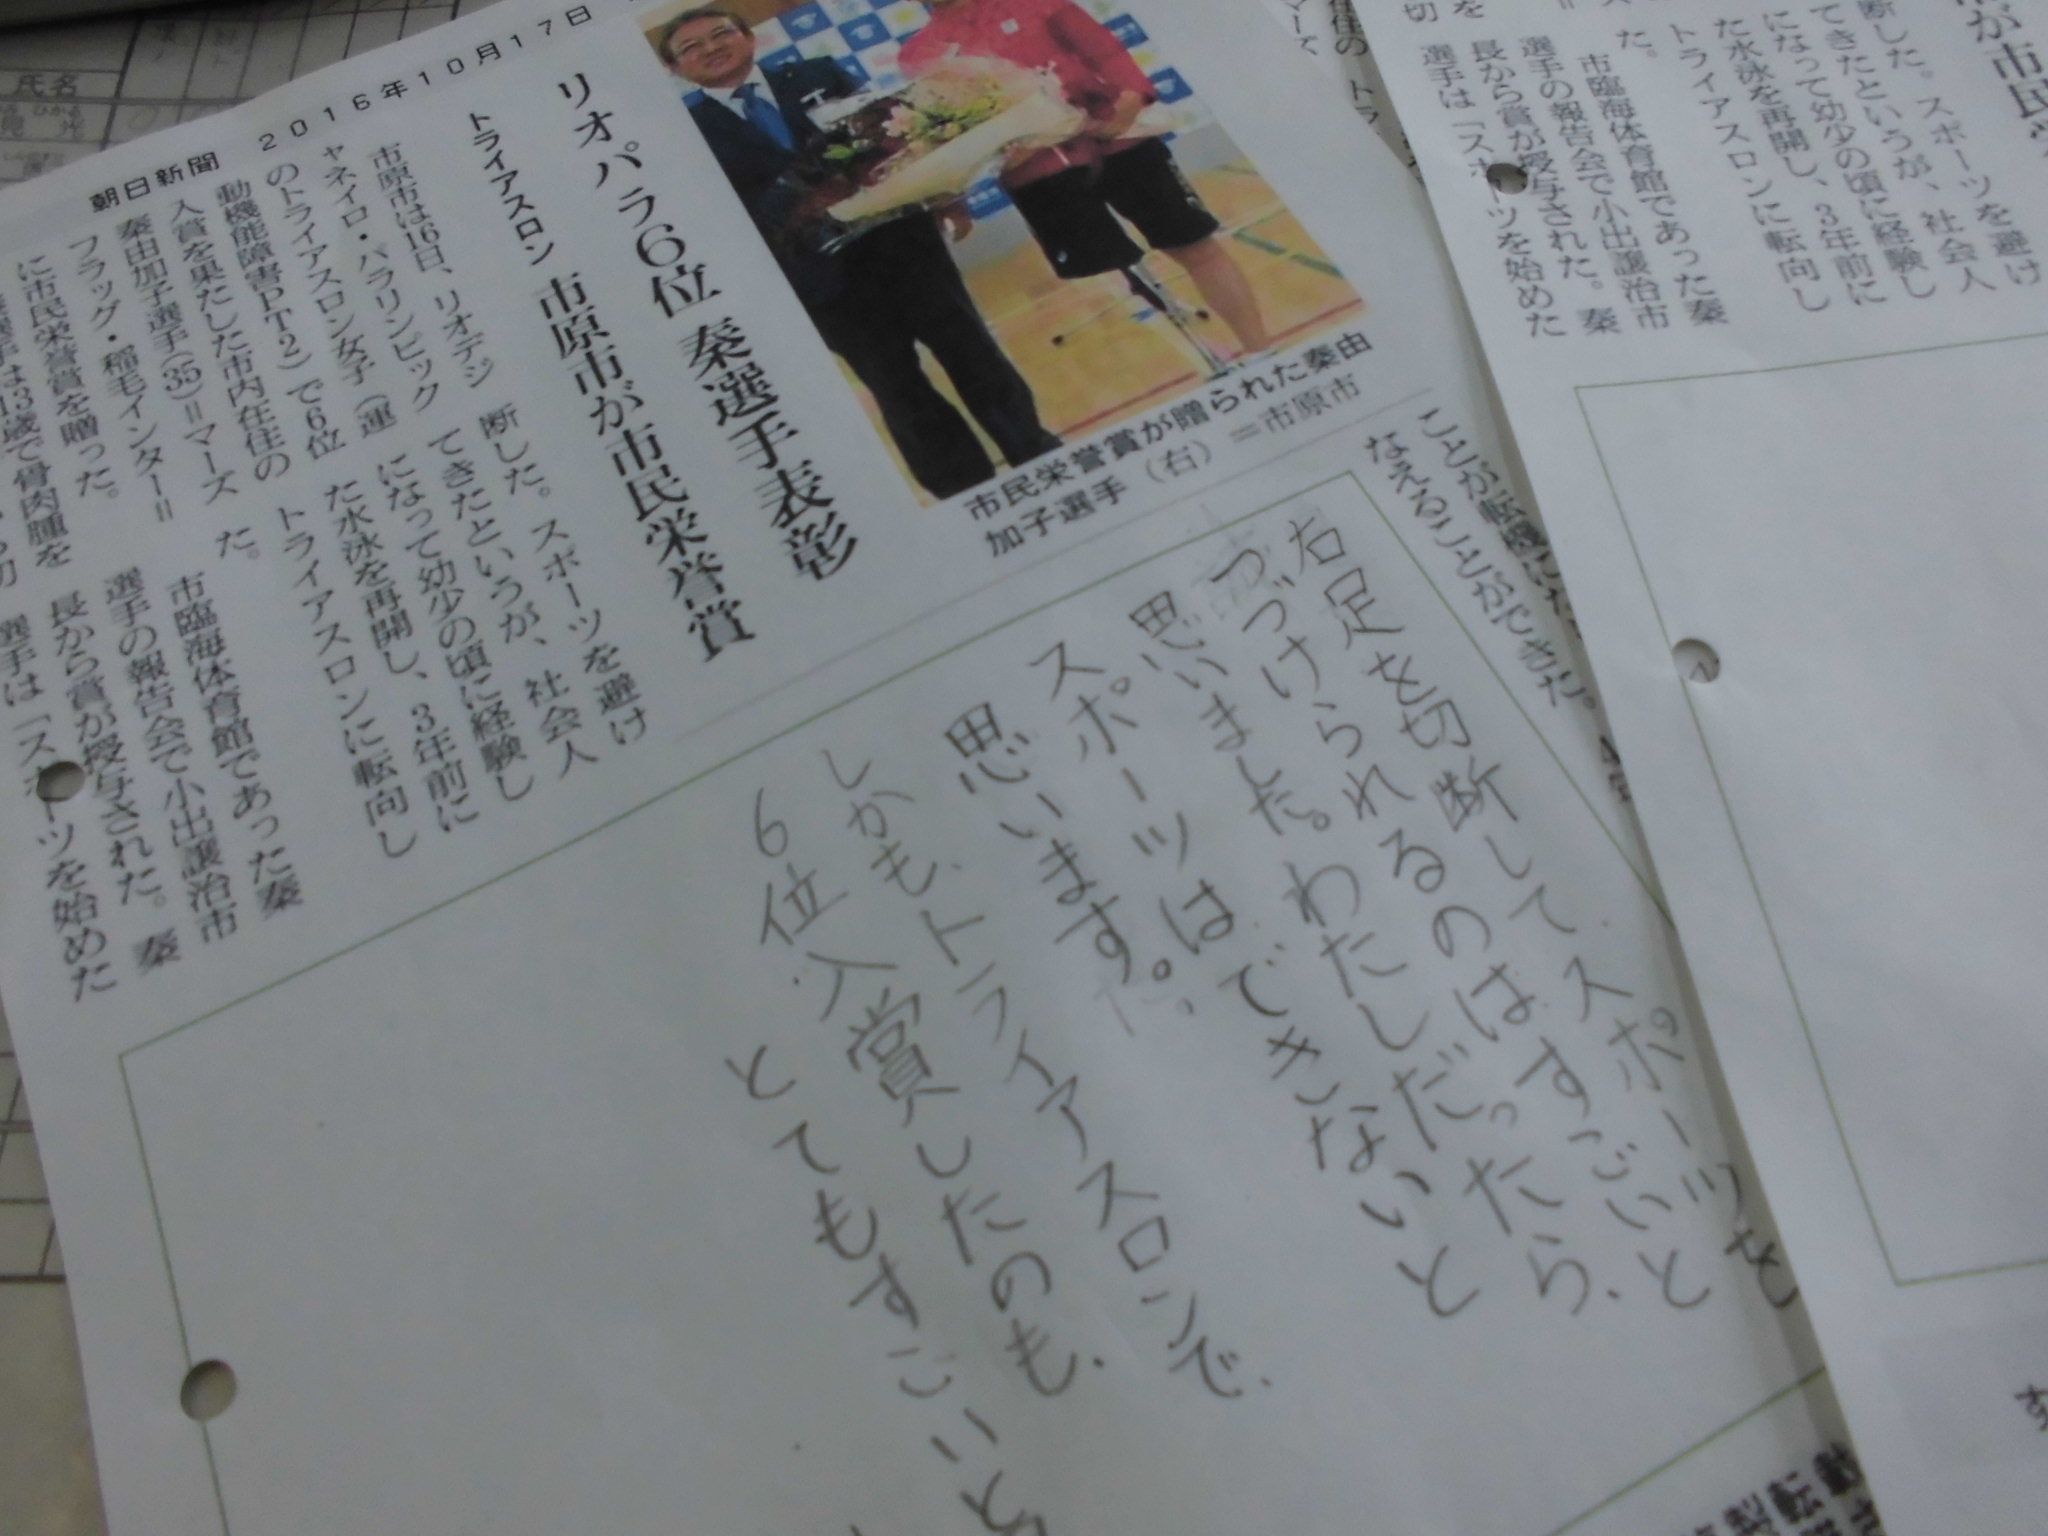 朝日新聞 2016年10月17日
リオパラ6位 秦選手表彰
トライアスロン 市原市が市民栄誉賞
市民栄誉賞が贈られた秦由
加子選手(右)=市原市
市原市は16日、リオデジ
ャネイロ・パラリンピック
のトライアスロン女子(運
動機能障害PT2)で6位
入賞を果たした市内在住の
秦由加子選手(35)=マーズ
フラッグ・稲毛インター=
に市民栄誉賞を贈った。
選手は13歳で骨肉腫を
断した。スポーツを避け
てきたというが、社会人
になって幼少の頃に経験し
た水泳を再開し、3年前に
トライアスロンに転向し
た。
市臨海体育館であった秦
選手の報告会で小出譲治市
長から賞が授与された。秦
選手は「スポーツを始めた
ことが転機
なえることができた。
右足を切断して、スポーツを
つづけられるのはすごいと
思いました。わたしだったら、
スポーツはできないと
思います。
しかも、トライアスロンで、
6位入賞したのも、
とてもすごいと
断した。スポーツを避け
てきたというが、社会人
になって幼少の頃に経験し
た水泳を再開し、3年前に
トライアスロンに転向し
た。
市臨海体育館であった秦
選手の報告会で小出譲治市
長から賞が授与された。秦
選手は「スポーツを始めた
が市民
氏名